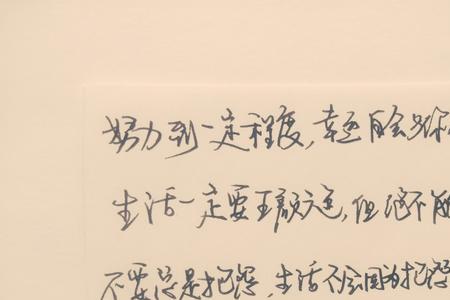 努力到一定程度,幸运自会与你
生活一定要五颜六色,但绝不能
不要总是抱怨,生活不会因为抱怨